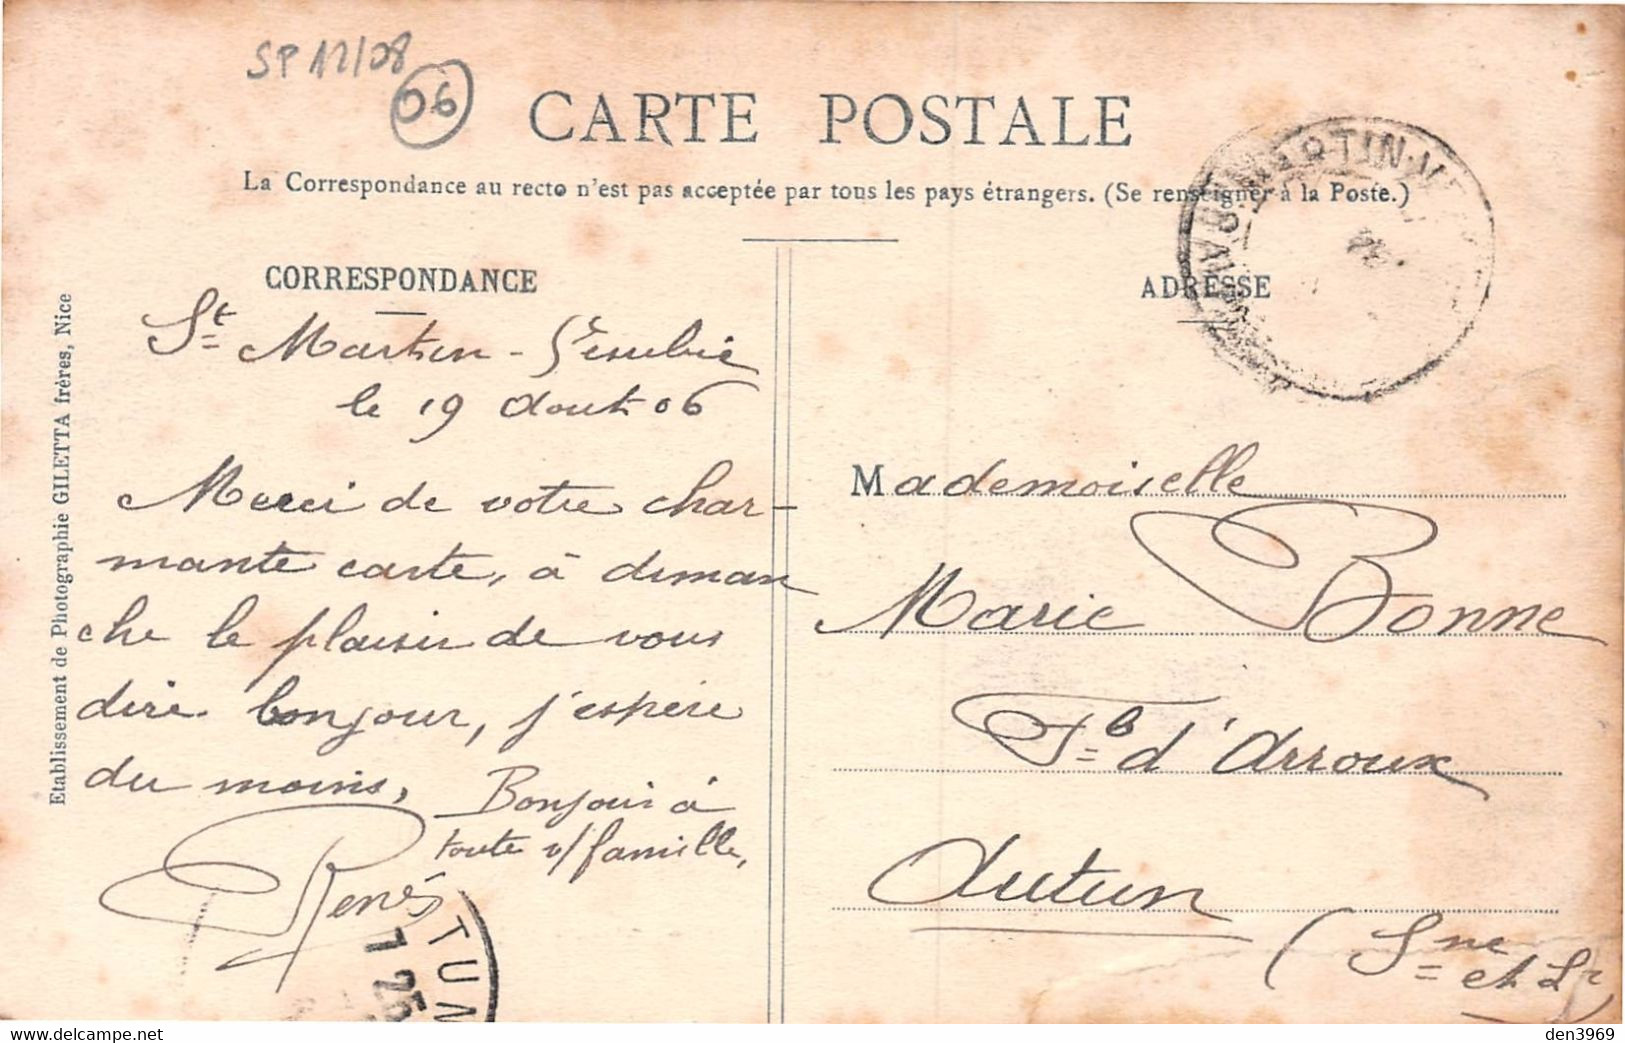 SP 12/08
06
CARTE POSTALE
La Correspondance au recto n'est pas acceptée par tous les pays étrangers. (Se renseigner à la Poste.)
CORRESPONDANCE
St Martin-Vésubie
le 19 Aout 06
Merci de votre char-
mante carte, à diman
che le plaisir de vous
dire bonjour, j'espère
du moins,
Bonjour à
toute v/ famille,
René
Etablissement de Photographie GILETTA frères, Nice
ADRESSE
Mademoiselle
Marie Bonne
Fb d'Arroux
Autun
(Sne
et Lr)
TUN
7 25
den3969